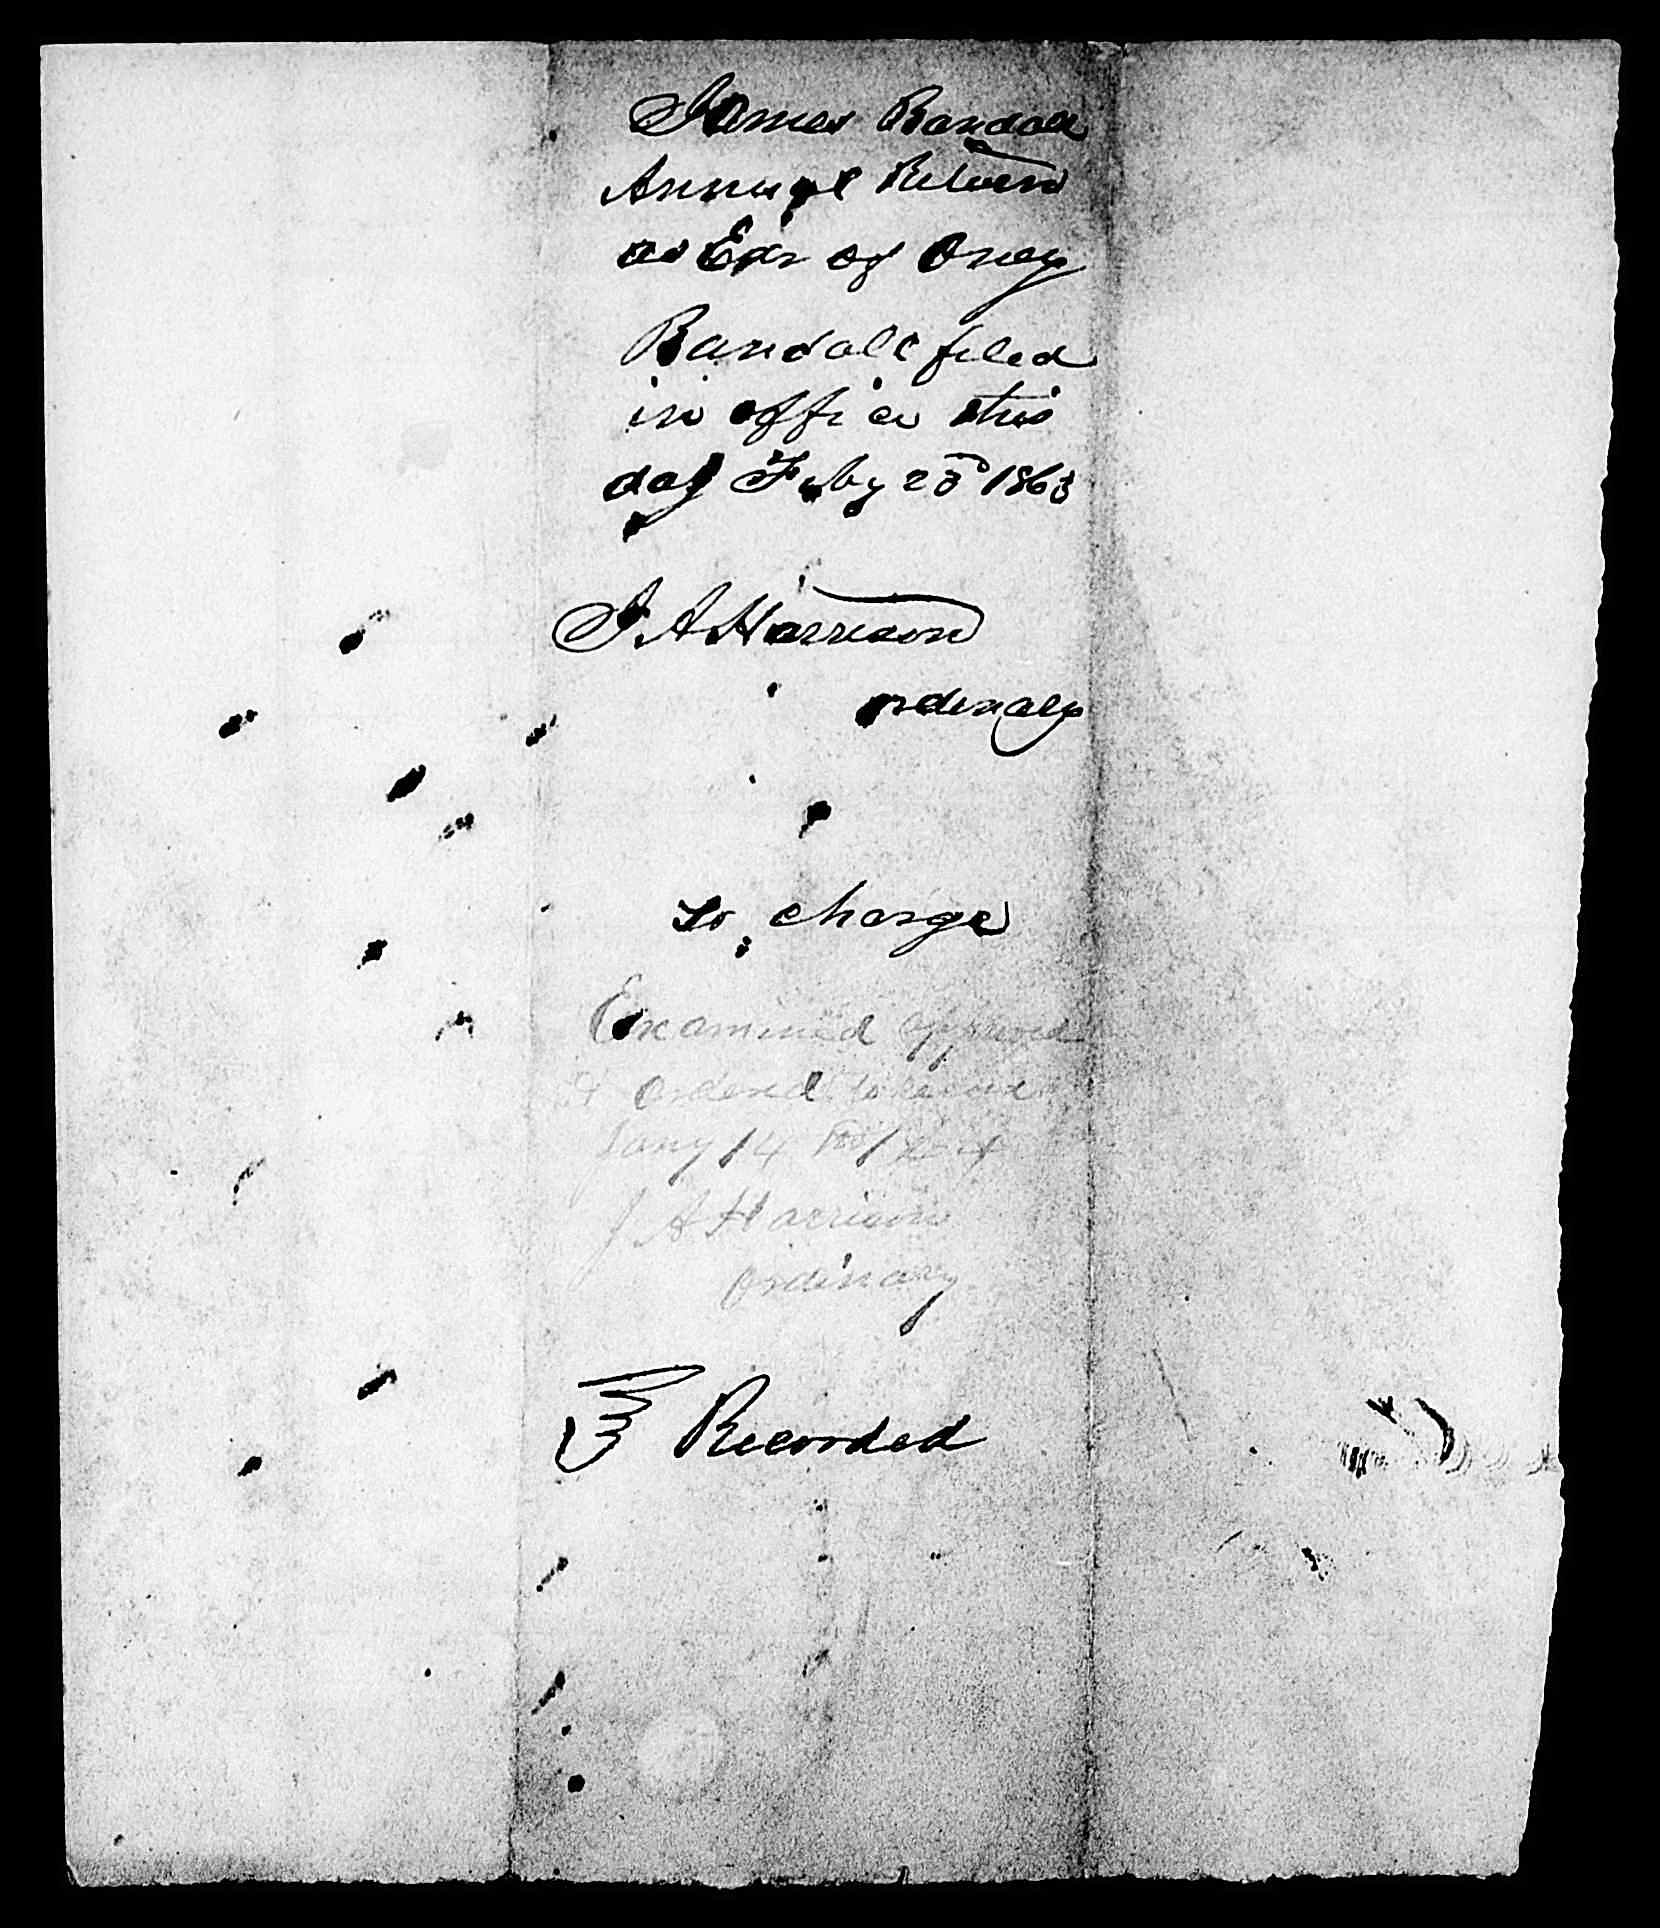 James Randall
Annual Return
as Exr of Oney
Randall filed
in office this
day Feby 23rd 1863
J A Harrison
ordinary
to charge
Examined approved
& ordered to record
Jany 14 1864
J A Harrison
ordinary
Recorded